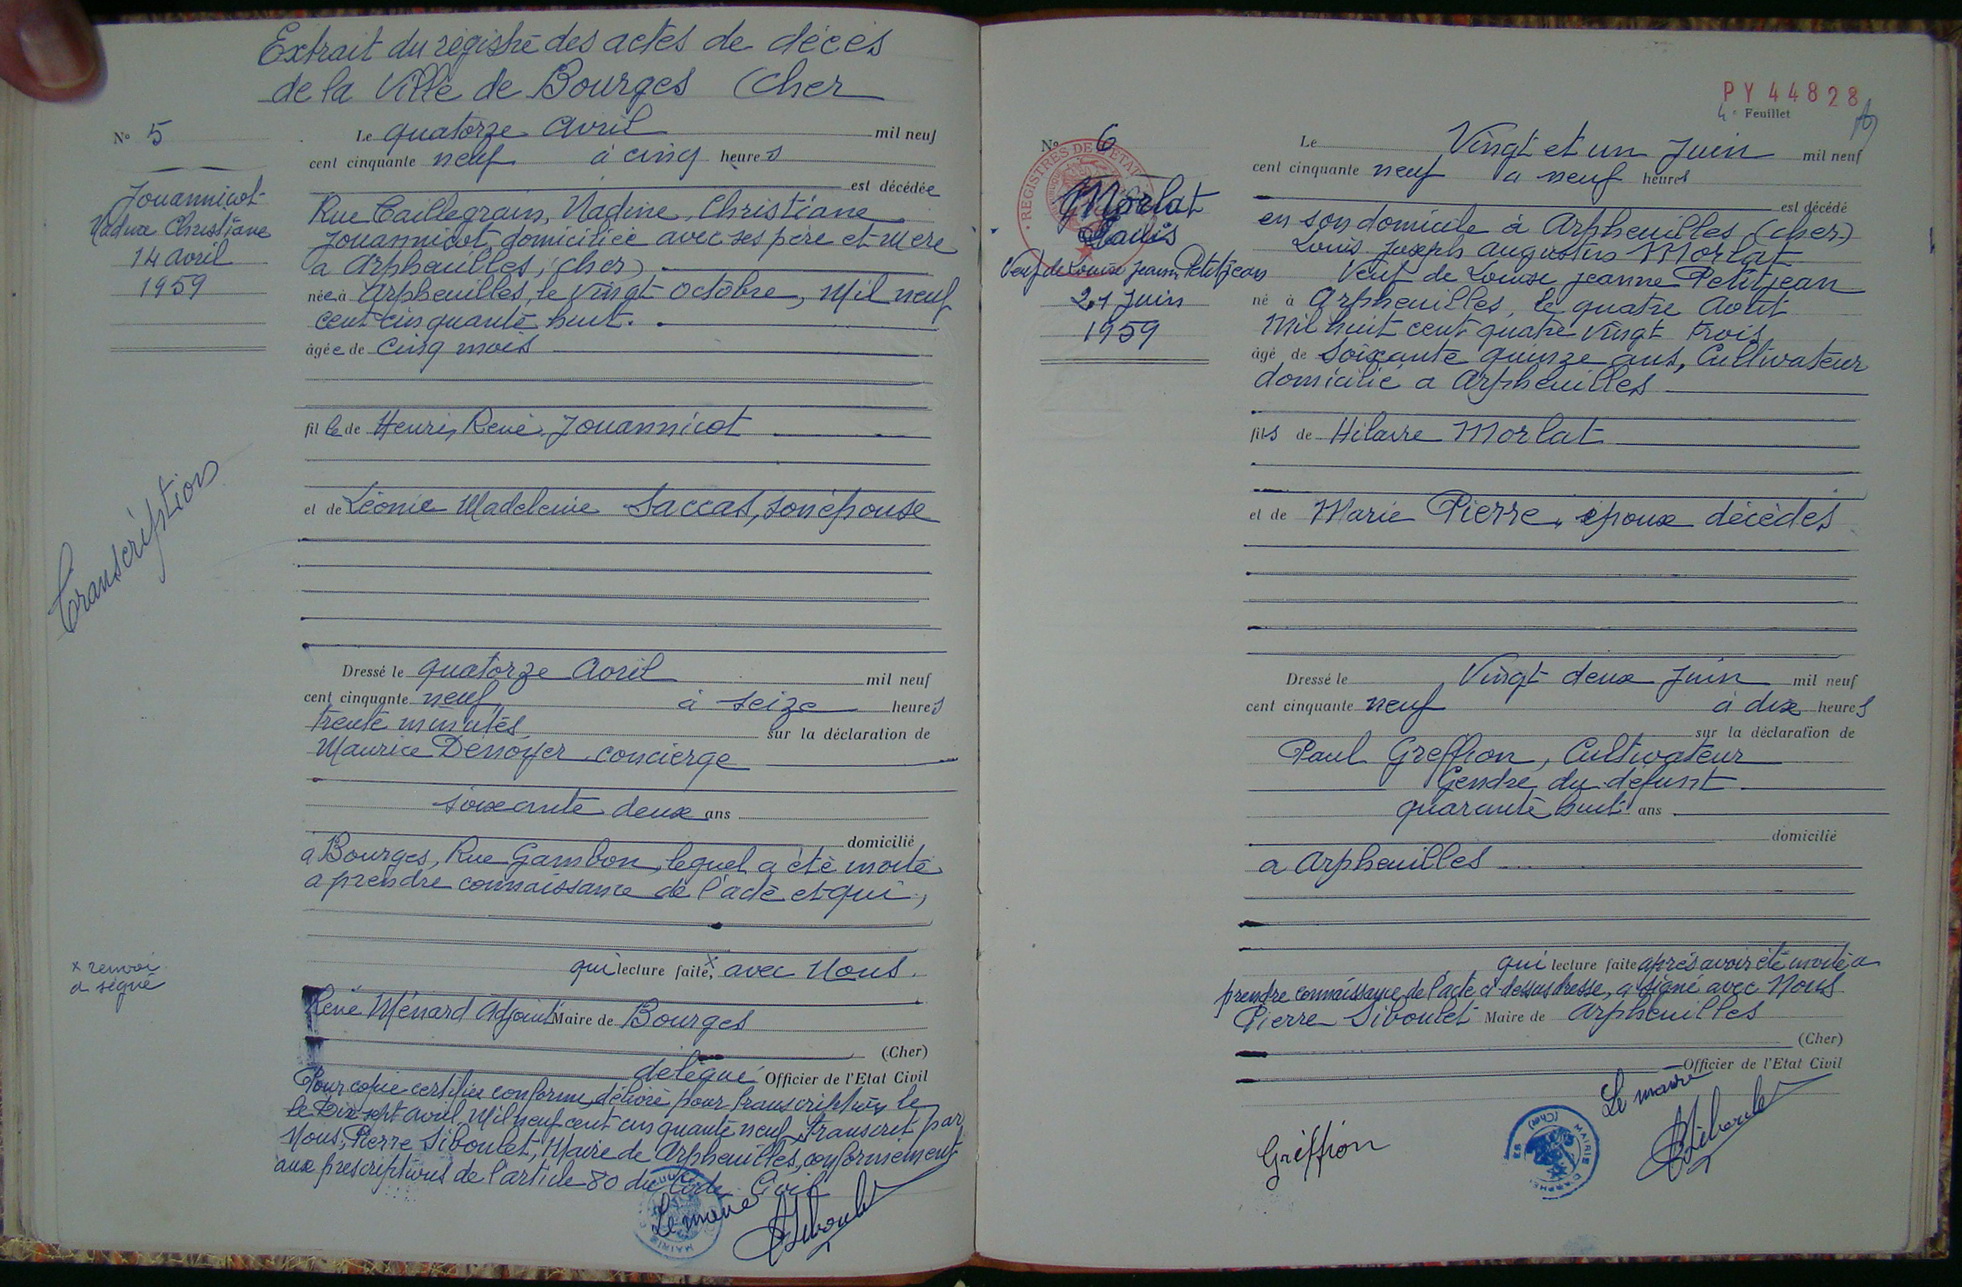 Extrait du régistre des actes de décès
de la Ville de Bourges (Cher
N° 5
Jouannicot
Nadine Christiane
14 avril
1959
Transcription
x renvoi
a signé
Le quatorze Avril mil neuf
cent cinquante neuf à cinq heures
est décédée
Rue Taillegrain, Nadine, Christiane
Jouannicot, domiciliée avec ses père et mère
à Arpheuilles, (Cher)
née à Arpheuilles, le vingt octobre, mil neuf
cent cinquante huit.
âgée de cinq mois
fille de Henri, René Jouannicot
et de Léonie Madeleine Saccas, son épouse
Dressé le quatorze Avril mil neuf
cent cinquante neuf à seize heures
trente minutes sur la déclaration de
Maurice Denoyer concierge
soixante deux ans
domicilié
à Bourges, Rue Gambon, lequel a été invité
a prendre connaissance de l'acte et qui,
qui lecture faite, x avec Nous
René Ménard Adjoint Maire de Bourges
(Cher)
délégué Officier de l'Etat Civil
Pour copie certifiée conforme, délivré pour transcription le
le Dix sept avril, Mil neuf cent cinquante neuf, transcrit par
Nous, Pierre Siboulet, Maire de Arpheuilles, conformément
aux prescriptions de l'article 80 du Code Civil
Le maire
PY 44828
4e Feuillet
N° 6
Morlat
Louis
Veuf de Louise Jeanne Petitjean
21 Juin
1959
Le Vingt et un Juin mil neuf
cent cinquante neuf a neuf heures
est décédé
en son domicile à Arpheuilles (Cher)
Louis Joseph Augustin Morlat
Veuf de Louise Jeanne Petitjean
né à Arpheuilles, le quatre Août
Mil huit cent quatre vingt trois
âgé de soixante quinze ans, Cultivateur
domicilié a Arpheuilles
fils de Hilaire Morlat
et de Marie Pierre, époux décédés
Dressé le Vingt deux Juin mil neuf
cent cinquante neuf à dix heures
sur la déclaration de
Paul Greffion, Cultivateur
Gendre du défunt
quarante huit ans
domicilié
a Arpheuilles
qui lecture faite après avoir été invité a
prendre connaissance de l'acte ci-dessus dressé, a signé avec Nous
Pierre Siboulet Maire de Arpheuilles
(Cher)
Officier de l'Etat Civil
Le maire
Gréffion